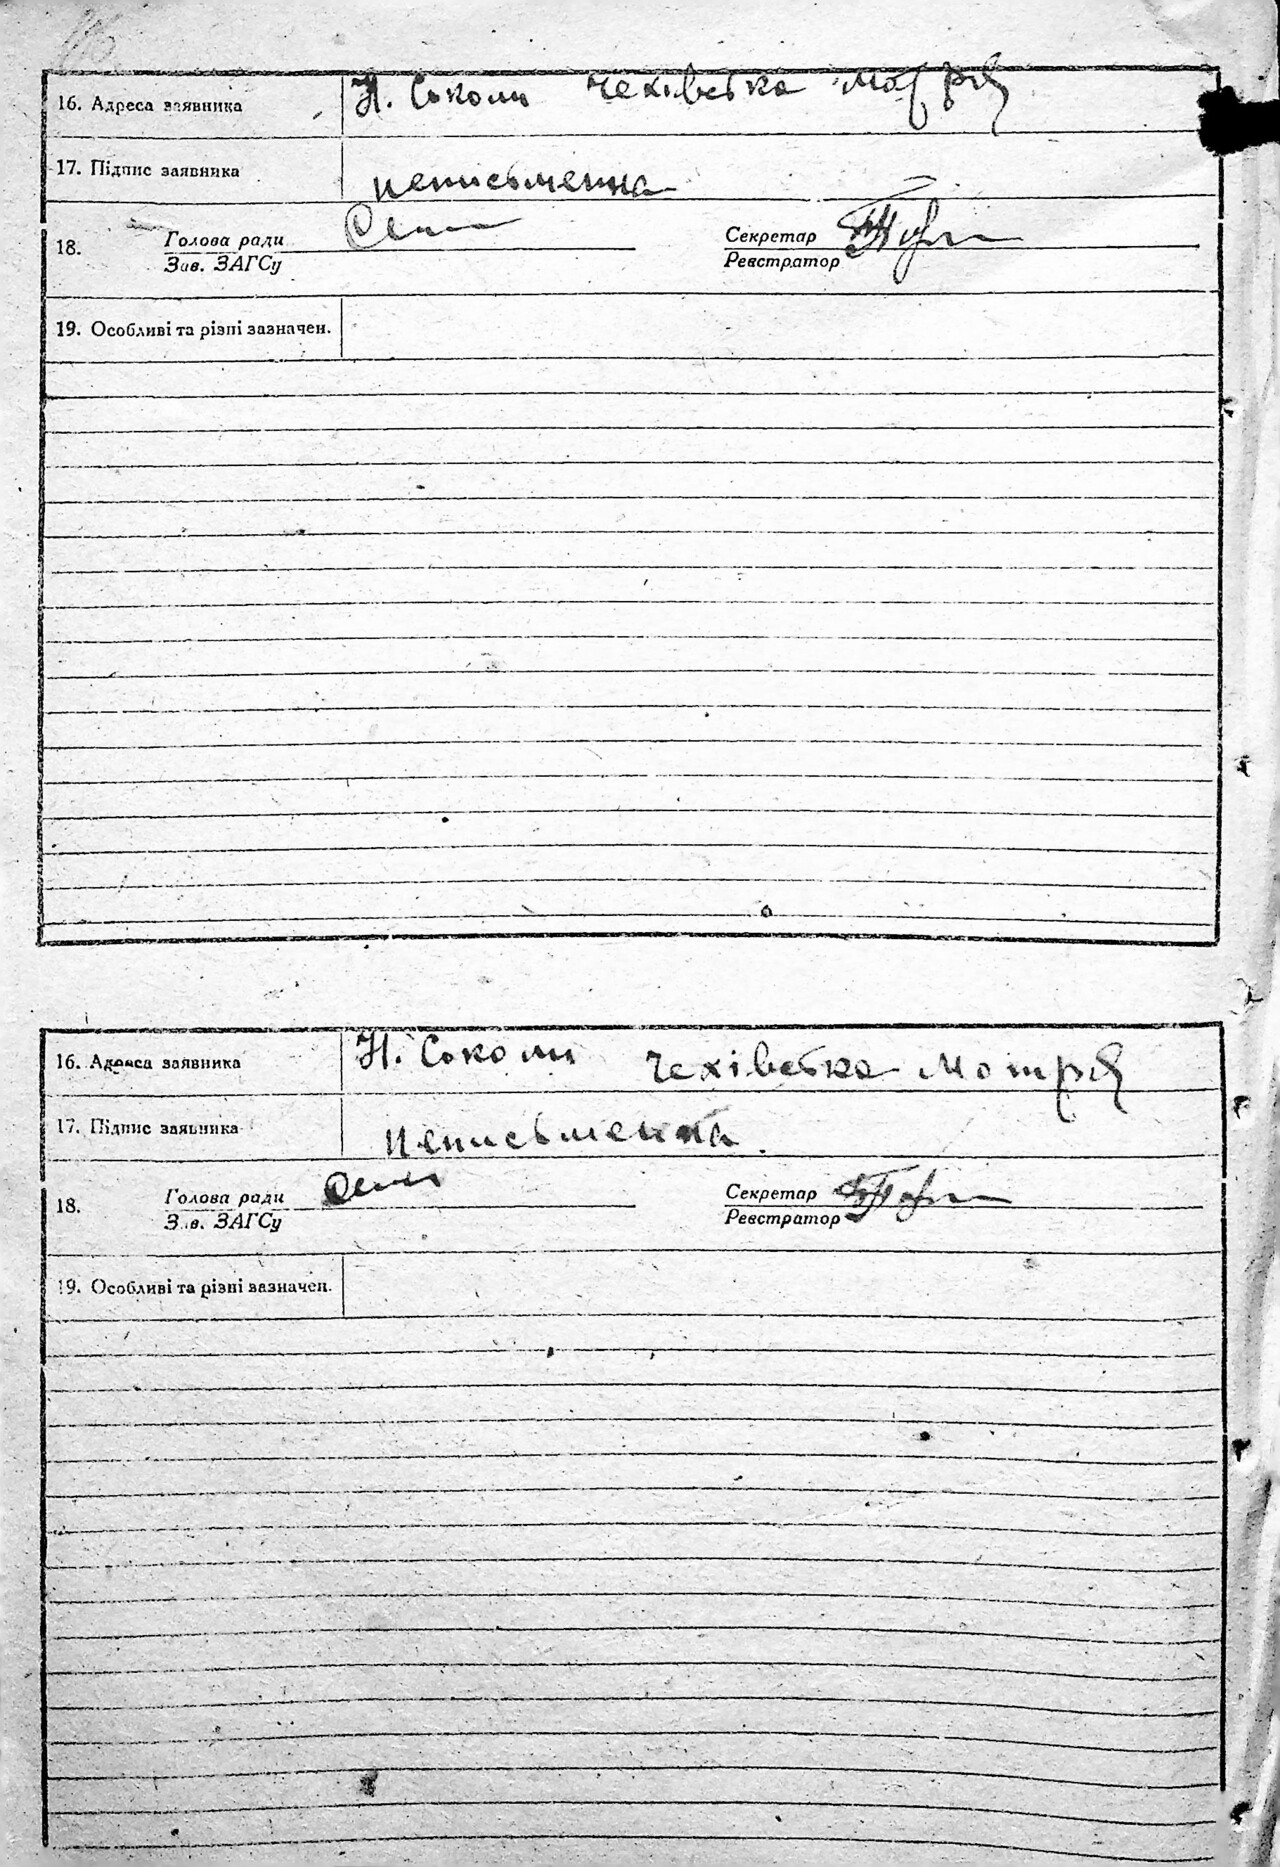 16. Адреса заявника Н. Соколи Чехівська Мотря
17. Підпис заявника неписьменна
18. Голова ради Секретар
Зав. ЗАГСу Реєстратор
19. Особливі та різні зазначен.
16. Адреса заявника Н. Соколи Чехівська Мотря
17. Підпис заявника неписьменна.
18. Голова ради Секретар
Зав. ЗАГСу Реєстратор
19. Особливі та різні зазначен.